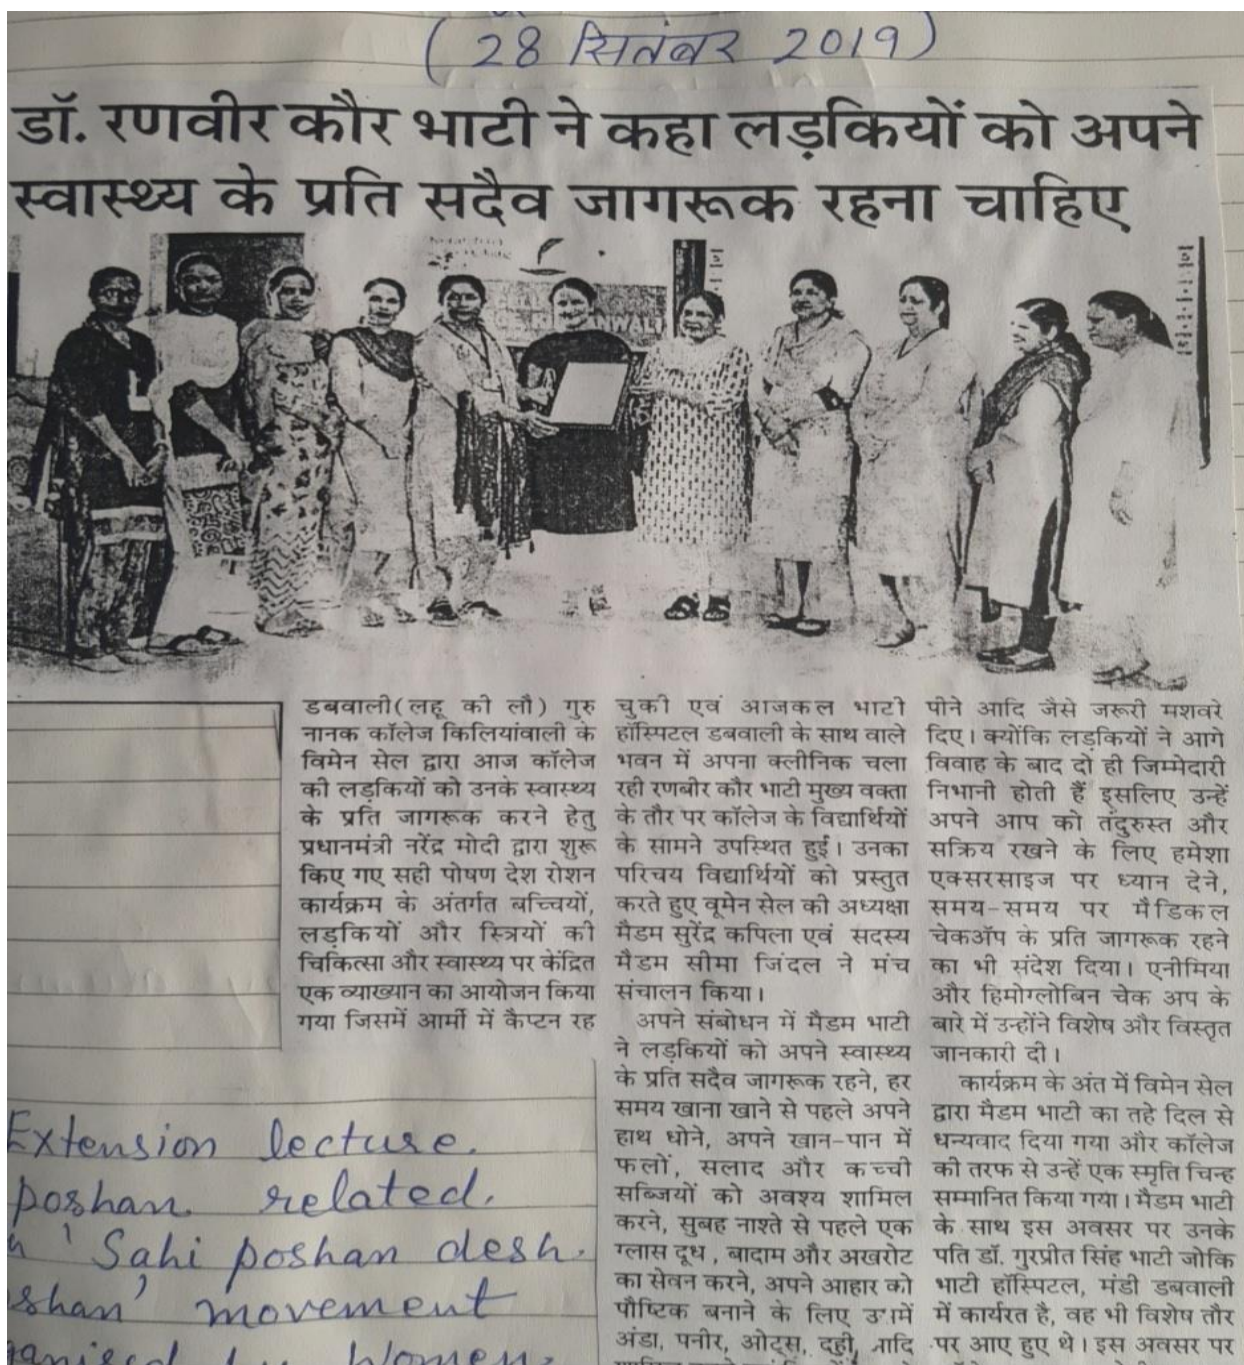 (28 सितंबर 2019)
डॉ. रणवीर कौर भाटी ने कहा लड़कियों को अपने
स्वास्थ्य के प्रति सदैव जागरूक रहना चाहिए
डबवाली(लहू की लौ) गुरु
नानक कॉलेज किलियांवाली के
विमेन सेल द्वारा आज कॉलेज
की लड़कियों को उनके स्वास्थ्य
के प्रति जागरूक करने हेतु
प्रधानमंत्री नरेंद्र मोदी द्वारा शुरू
किए गए सही पोषण देश रोशन
कार्यक्रम के अंतर्गत बच्चियों,
लड़कियों और स्त्रियों की
चिकित्सा और स्वास्थ्य पर केंद्रित
एक व्याख्यान का आयोजन किया
गया जिसमें आर्मी में कैप्टन रह
चुकी एवं आजकल भाटी
हॉस्पिटल डबवाली के साथ वाले
भवन में अपना क्लीनिक चला
रही रणबीर कौर भाटी मुख्य वक्ता
के तौर पर कॉलेज के विद्यार्थियों
के सामने उपस्थित हुईं। उनका
परिचय विद्यार्थियों को प्रस्तुत
करते हुए वूमेन सेल की अध्यक्षा
मैडम सुरेंद्र कपिला एवं सदस्य
मैडम सीमा जिंदल ने मंच
संचालन किया।
अपने संबोधन में मैडम भाटी
ने लड़कियों को अपने स्वास्थ्य
के प्रति सदैव जागरूक रहने, हर
समय खाना खाने से पहले अपने
हाथ धोने, अपने खान-पान में
फलों, सलाद और कच्ची
सब्जियों को अवश्य शामिल
करने, सुबह नाश्ते से पहले एक
ग्लास दूध, बादाम और अखरोट
का सेवन करने, अपने आहार को
पौष्टिक बनाने के लिए उसमें
अंडा, पनीर, ओट्स, दही, आदि
पीने आदि जैसे जरूरी मशवरे
दिए। क्योंकि लड़कियों ने आगे
विवाह के बाद दो ही जिम्मेदारी
निभानी होती हैं इसलिए उन्हें
अपने आप को तंदुरुस्त और
सक्रिय रखने के लिए हमेशा
एक्सरसाइज पर ध्यान देने,
समय-समय पर मैडिकल
चेकअॅप के प्रति जागरूक रहने
का भी संदेश दिया। एनीमिया
और हिमोग्लोबिन चेक अप के
बारे में उन्होंने विशेष और विस्तृत
जानकारी दी।
कार्यक्रम के अंत में विमेन सेल
द्वारा मैडम भाटी का तहे दिल से
धन्यवाद दिया गया और कॉलेज
की तरफ से उन्हें एक स्मृति चिन्ह
सम्मानित किया गया। मैडम भाटी
के साथ इस अवसर पर उनके
पति डॉ. गुरप्रीत सिंह भाटी जोकि
भाटी हॉस्पिटल, मंडी डबवाली
में कार्यरत है, वह भी विशेष तौर
पर आए हुए थे। इस अवसर पर
Extension lecture.
poshan related.
'Sahi poshan desh.
shan' movement
Women.